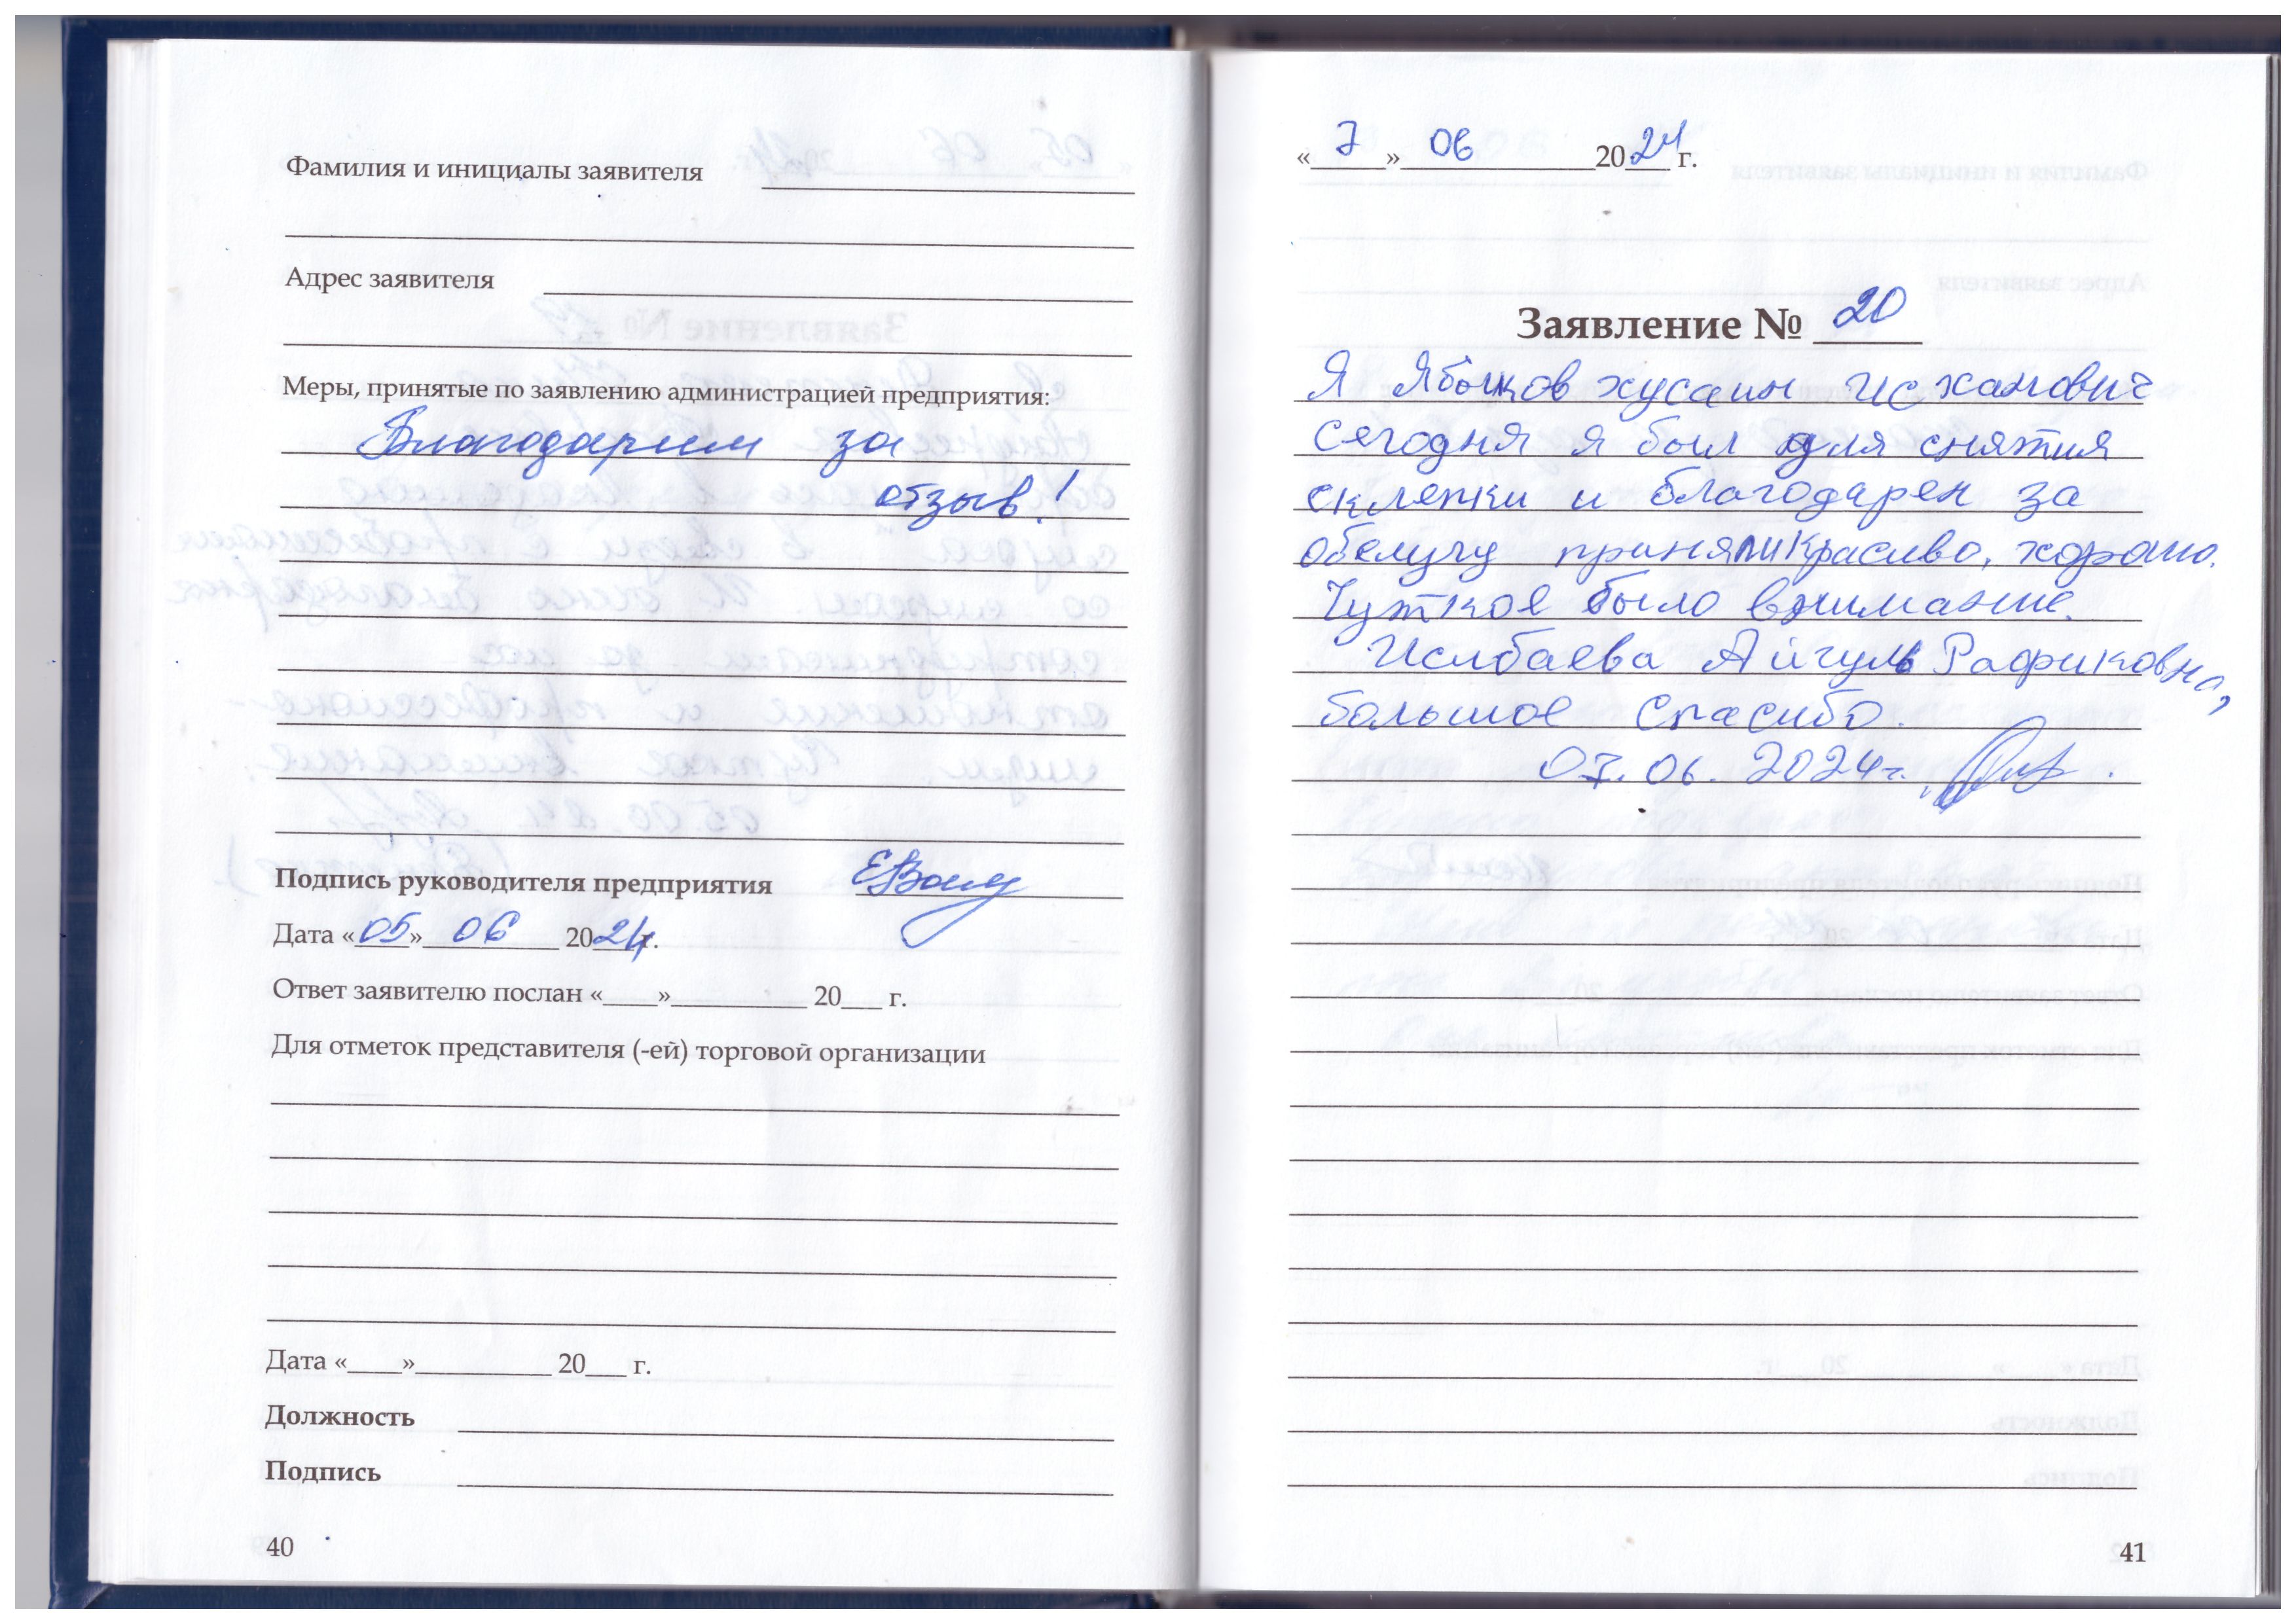 Фамилия и инициалы заявителя
Адрес заявителя
Меры, принятые по заявлению администрацией предприятия:
Благодарим за
отзыв!
Подпись руководителя предприятия
Дата «05» 06 2024г.
Ответ заявителю послан «____»__________ 20___ г.
Для отметок представителя (-ей) торговой организации
Дата «____»__________ 20___ г.
Должность
Подпись
40
«7» 06 2024г.
Заявление № 20
Я хусаин Исханович
Сегодня я был для снятия
склепки и благодарен за
обслугу приняли красиво, хорошо.
Чуткое было внимание.
Исмбаева Айгуль Рафиковна,
большое спасибо.
07.06.2024г.
41